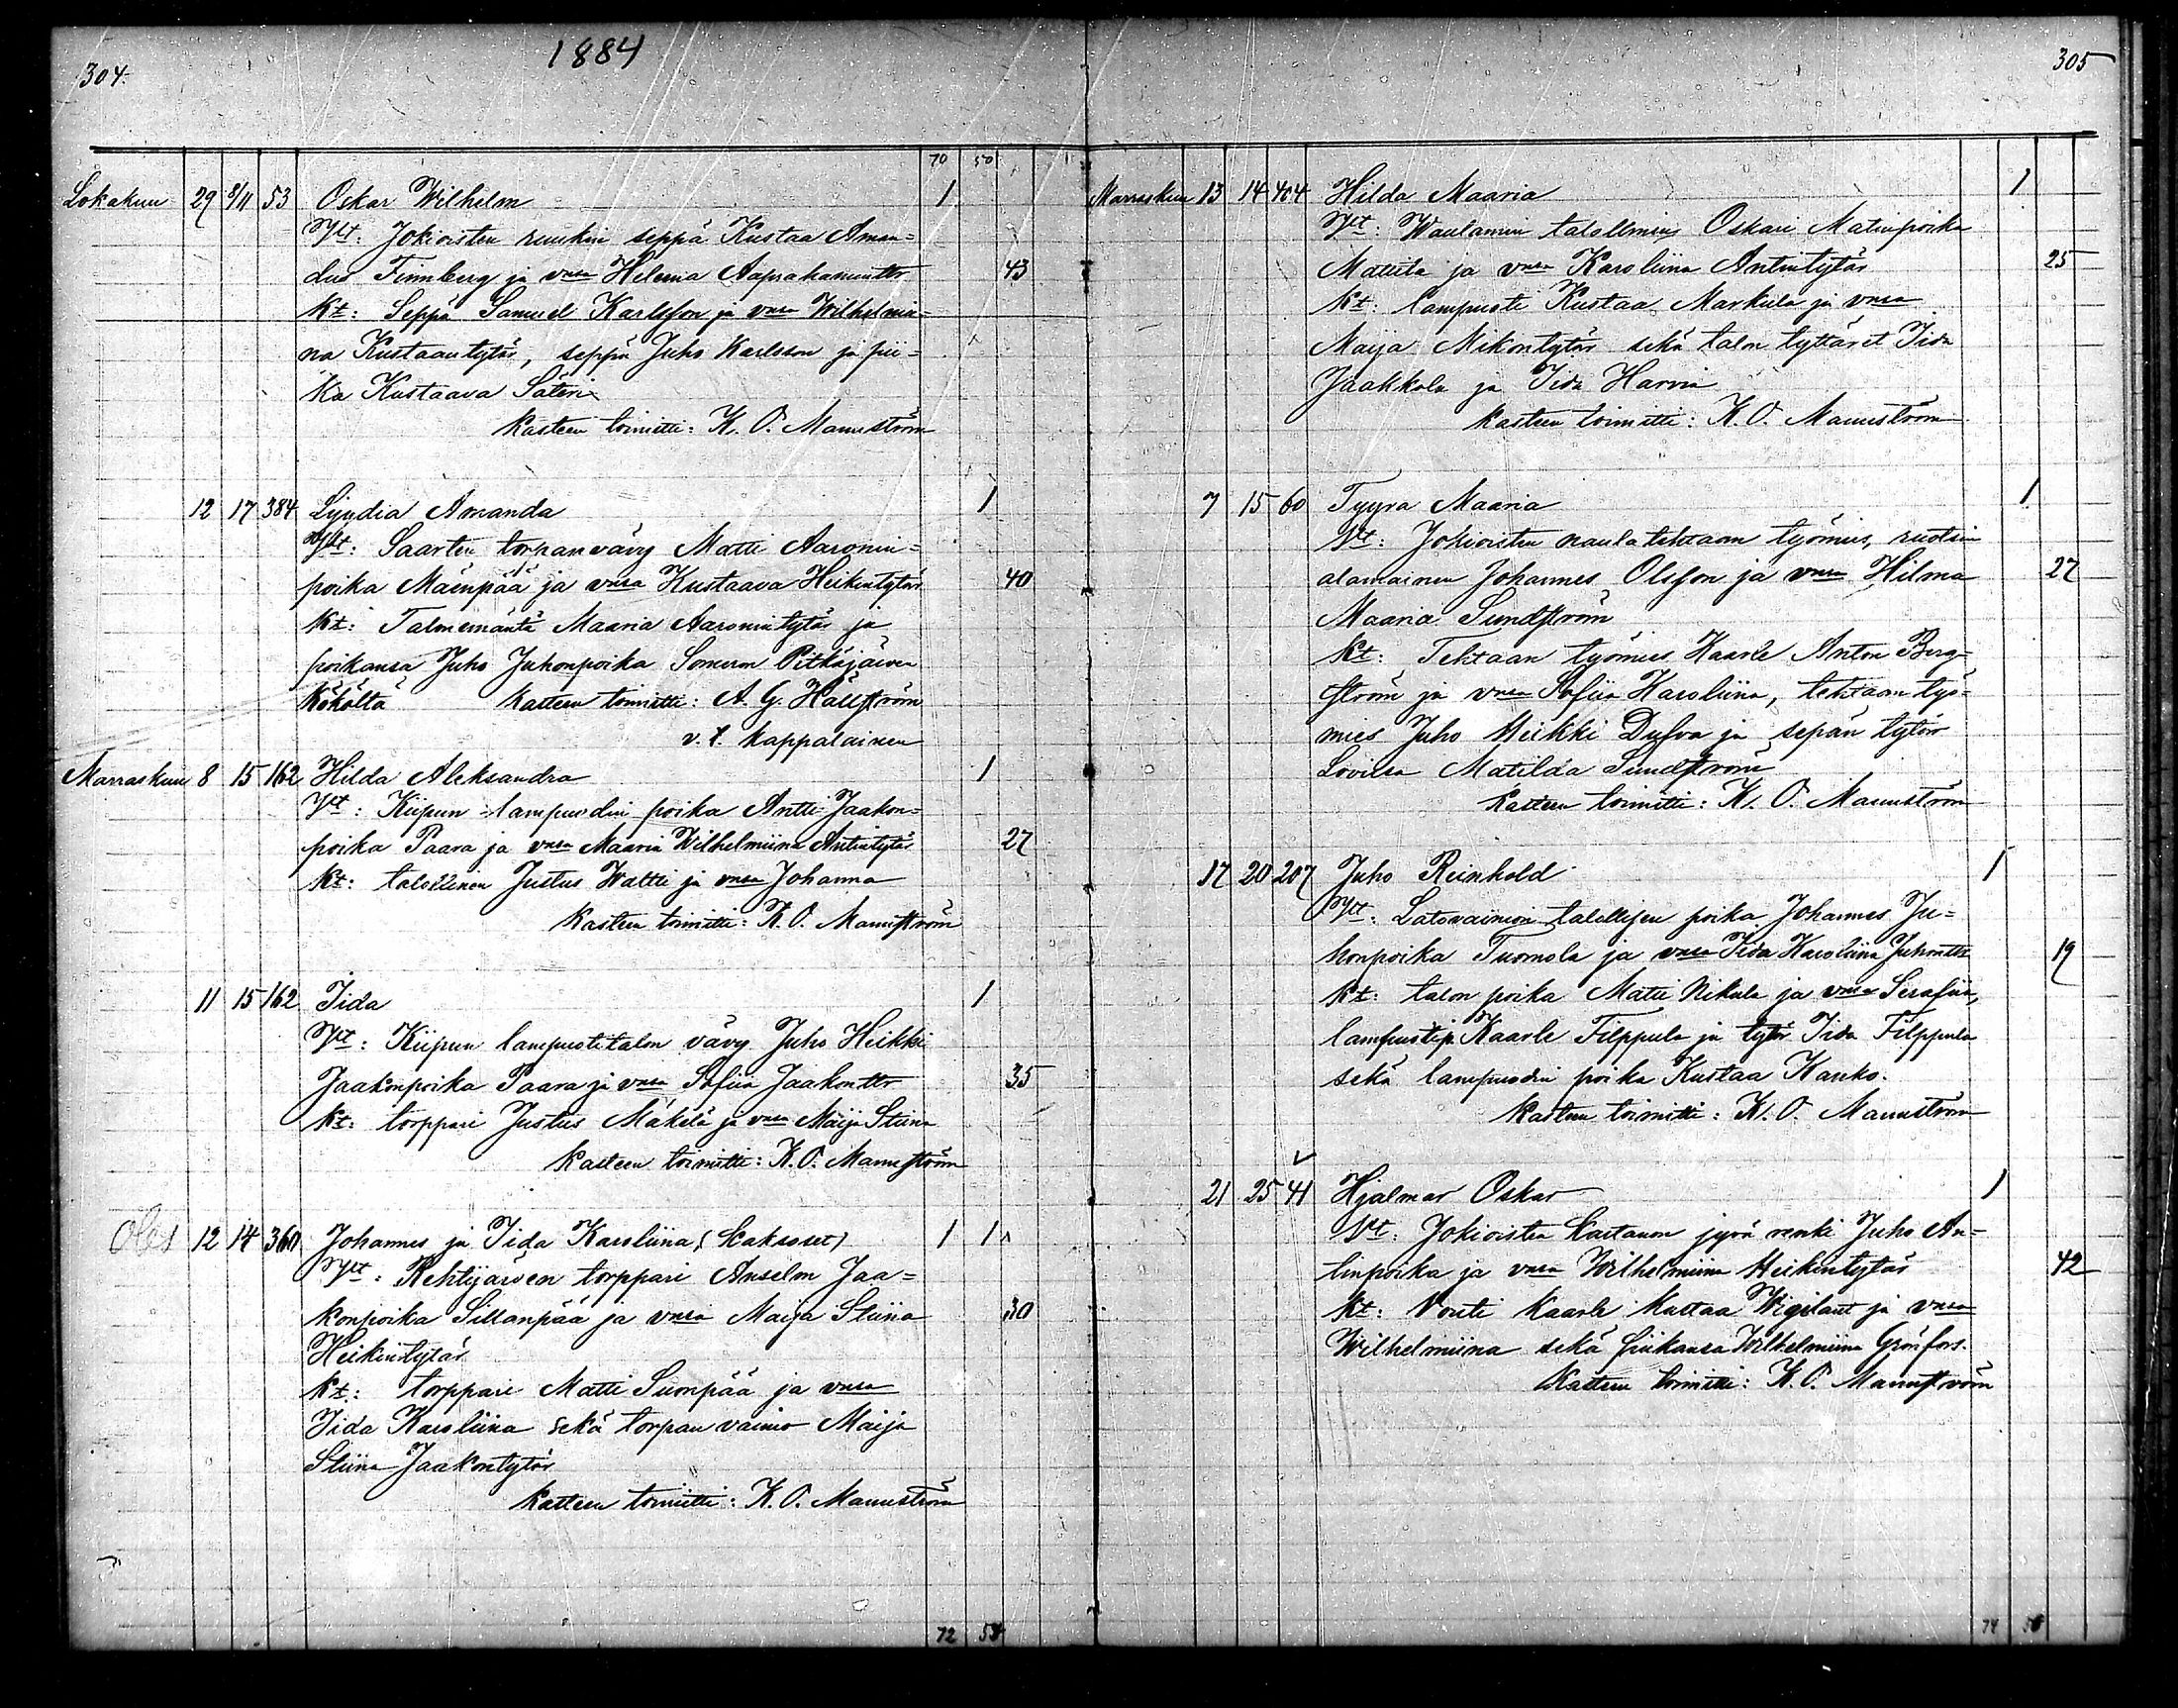 304.
1884
70 50
Lokakuu 29 8/11 53 Oskar Wilhelm 1
Vht: Jokioisten ruukin seppä Kustaa Aman=
dus Finnberg ja vmsa Helena Aaprahamintr 43
Kt: Seppä Samuel Karlsson ja vmsa Wilhelmii=
na Kustaantytär, seppä Juho Karlsson ja pii=
ka Kustaava Säteri
Kasteen toimitti: K. O. Mannström
12 17 384 Lyydia Amanda 1
Vht: Saarten torpanvävy Matti Aaronin=
poika Mäenpää ja vmsa Kustaava Heikintytär 40
Kt: Talonemäntä Maaria Aaronintytär ja
poikansa Juho Juhonpoika Someron Pitkäjärven
Kököltä Kasteen toimitti: A. G. Hällström
v. t. kappalainen
Marraskuu 8 15 162 Hilda Aleksandra 1
Vht: Kiipun lampuodin poika Antti Jaakon=
poika Paara ja vmsa Maaria Wilhelmiina Antintytär 27
Kt: talollinen Justus Waltti ja vmsa Johanna
Kasteen toimitti: K. O. Mannström
11 15 162 Iida 1
Vht: Kiipun lampuotitalon vävy Juho Heikki
Jaakonpoika Paara ja vmsa Sofiia Jaakontr 35
Kt: torppari Justus Mäkelä ja vmsa Maija Stiina
Kasteen toimitti: K. O. Mannström
12 14 360 Johannes ja Iida Karoliina (Kaksoset) 1 1
Vht: Rehtijärven torppari Anselm Jaa=
konpoika Sillanpää ja vmsa Maija Stiina 30
Heikintytär
Kt: torppari Matti Suonpää ja vmsa
Iida Karoliina sekä torpan vaimo Maija
Stiina Jaakontytär
Kasteen toimitti: K. O. Mannström
72
305
Marraskuu 13 14 404 Hilda Maaria 1
Vht: Waulamin talollinen Oskari Matinpoika
Mattila ja vmsa Karoliina Antintytär 25
Kt: lampuoti Kustaa Markula ja vmsa
Maija Mikontytär sekä talon tyttäret Iida
Jaakkola ja Iida Harvia
Kasteen toimitti: K. O. Mannström
7 15 60 Tyyra Maaria 1
Vht: Jokioisten naulatehtaan työmies, ruotsin
alamainen Johannes Olsson ja vmsa Hilma 27
Maaria Sundström
Kt: Tehtaan työmies Kaarle Anton Berg=
ström ja vmsa Sofiia Karoliina, tehtaan työ=
mies Juho Heikki Dufva ja sepän tytär
Loviisa Matilda Sundström
Kasteen toimitti: K. O. Mannström
17 20 207 Juho Reinhold 1
Vht: Latovainion talollisen poika Johannes Ju=
honpoika Tuomola ja vmsa Iida Karoliina Juhontr 19
Kt: talon poika Matti Nikula ja vmsa Serafiia,
lampuotip Kaarle Filppula ja tytär Iida Filppula
sekä lampuodin poika Kustaa Kanko.
Kasteen toimitti: K. O. Mannström
21 25 41 Hjalmar Oskar 1
Vht: Jokioisten kartanon jyvä renki Juho An=
tinpoika ja vmsa Wilhelmiina Heikintytär 42
Kt: Vouti Kaarle Kustaa Wigilant ja vmsa
Wilhelmiina sekä piikansa Wilhelmiina Grönfors.
Kasteen toimitti: K. O. Mannström
74